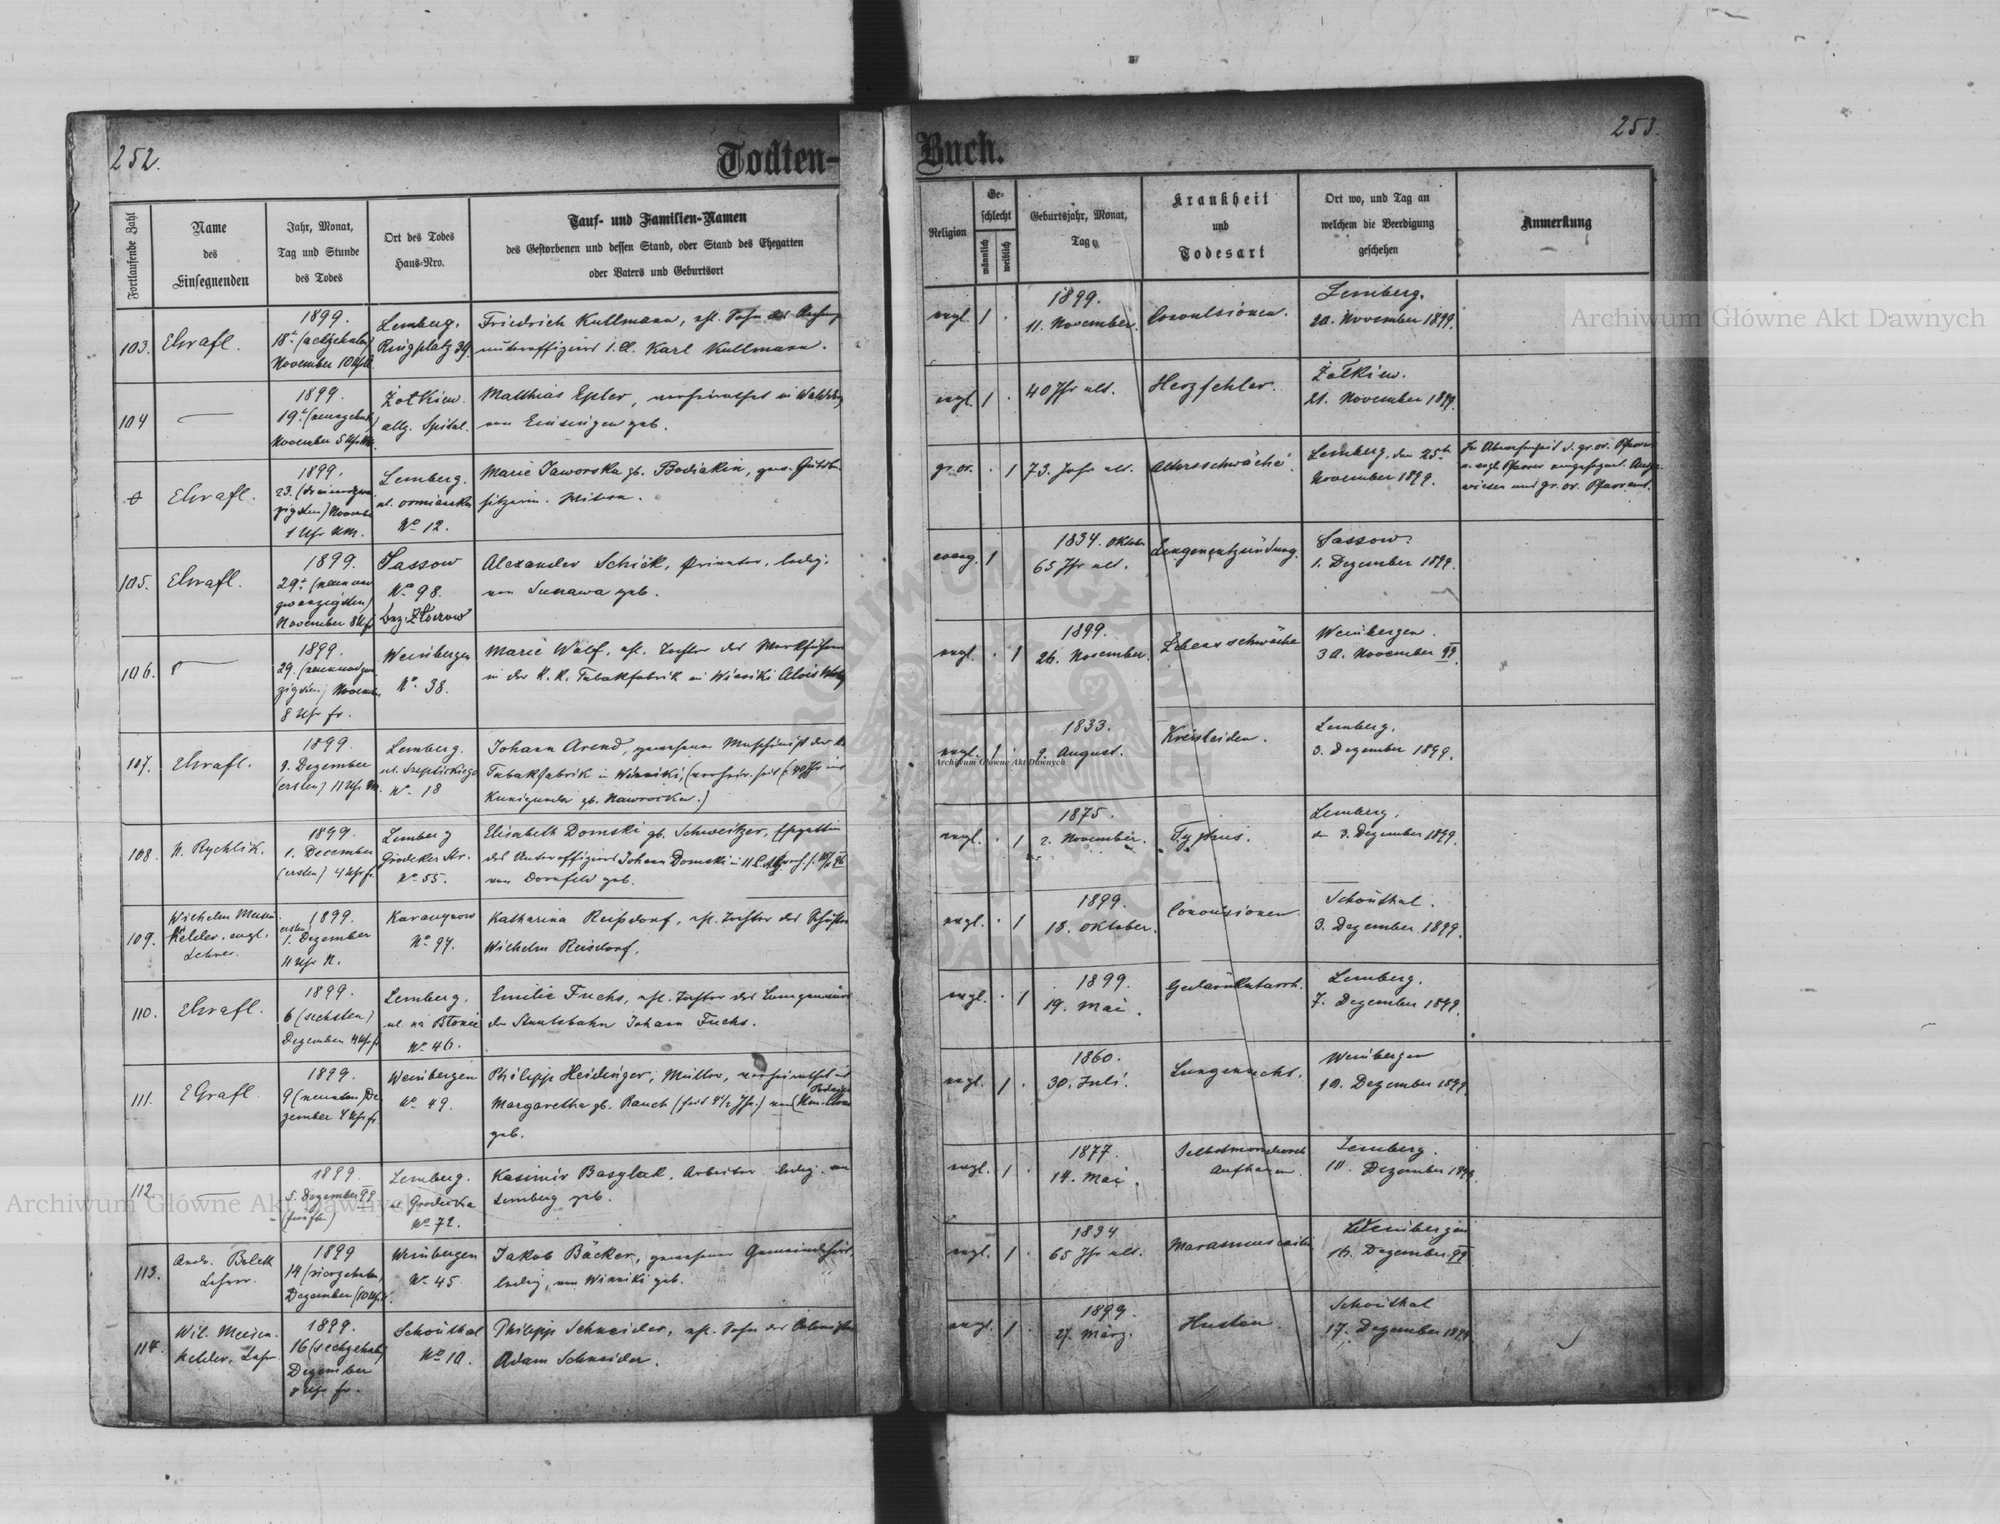 252.
253.
Todten-
Buch.
Fortlaufende Zahl
Name
des
Einsegnenden
Jahr, Monat,
Tag und Stunde
des Todes
Ort des Todes
Haus-Nro.
Tauf- und Familien-Namen
des Gestorbenen und dessen Stand, oder Stand des Ehegatten
oder Vaters und Geburtsort
Religion
Ge-
schlecht
männlich
weiblich
Geburtsjahr, Monat,
Tag
Krankheit
und
Todesart
Ort wo, und Tag an
welchem die Beerdigung
geschehen
Anmerkung
103.
1899.
18t (achtzehnten)
November 10 Uhr
Lemberg.
Ringplatz 39
Friedrich Kullmann, ehl. Sohn des
unteroffiziers I. Cl. Karl Kullmann.
evgl. 1 .
1899.
11. November.
Convulsionen.
Lemberg.
20. November 1899.
104
1899.
19t (neunzehnten)
November 5 Uhr
Żołkiew.
allg. Spital.
Matthias Epler, verheirathet in
von Einsingen geb.
evgl. 1 .
40 Jhr alt.
Herzfehler.
Żołkiew.
21. November 1899.
1899.
23. (dreiundzwan
zigsten) Novembr
1 Uhr NM.
Lemberg.
ul. ormiańska
No 12.
Marie Jaworska gb. Bodiakin, gew. Gutsbe
sitzerin. Witwe.
gr. or. . 1
73. Jahr alt.
Altersschwäche.
Lemberg, den 25t
November 1899.
In Abwesenheit d. gr. or. Pfarrers
v. evgl. Pfarrer eingesegnet.
105.
1899.
29t (neunund
zwanzigsten)
November 8 Uhr
Sassow
No 98.
Bez. Złoczow
Alexander Schick, Privater, ledig,
von Sunawa geb.
evang. 1
1834. Oktobr
65 Jhr alt.
Lungenentzündung.
Sassow.
1. Dezember 1899.
106.
1899.
29. (neunundzwan
zigsten) November
8 Uhr fr.
Weinbergen
No 38.
Marie Wolf, ehl. Tochter des Werkführers
in der K. K. Tabakfabrik in Winniki Alois Wolf
evgl. . 1
1899.
26. November.
Lebensschwäche
Weinbergen.
30. November 99.
107.
1899.
1. Dezember
(ersten) 11 Uhr
Lemberg.
ul. Szeptickiego
No 18
Johann Arend, gewesener Maschinist der
Tabakfabrik in Winniki, (verheir. seit 40 Jhr mit
Kunigunda gb. Nawrocka.)
evgl. 1 .
1833.
2. August.
Krebsleiden.
Lemberg.
3. Dezember 1899.
108.
N. Rychlik.
1899.
1. December
(ersten) 4 Uhr fr.
Lemberg
Grodeker Str.
No 55.
Elisabeth Domski gb. Schweitzer, Ehgattin
des Unteroffiziers Johann Domski
von Dornfeld geb.
evgl. . 1
1875.
2. November.
Typhus.
Lemberg.
den 3. Dezember 1899.
109.
Kelder, evgl.
Lehrer.
1899.
ersten
1. Dezember
11 Uhr N.
Karaczynow
No 97.
Katharina Reisdorf, ehl. Tochter des Schusters
Wilhelm Reisdorf.
evgl. . 1
1899.
18. Oktober.
Convulsionen.
Schönthal.
3. Dezember 1899.
110.
1899.
6 (sechsten)
Dezember 4 Uhr fr.
Lemberg.
ul. na Błonie
No 46.
Emilie Fuchs, ehl. Tochter des
der Staatsbahn Johann Fuchs.
evgl. . 1
1899.
19. Mai.
Lemberg.
7. Dezember 1899.
111.
1899.
9 (neunten) De
zember 4 Uhr fr.
Weinbergen
No 49.
Philipp Heidinger, Müller, verheirathet mit
Margaretha gb. Rauch (seit 4 1/2 Jhr.) von
geb.
evgl. 1 .
1860.
30. Juli.
Lungensucht.
Weinbergen
10. Dezember 1899
112.
1899.
5. Dezember 99
(fünften)
Lemberg.
ul. Grodecka
No 72.
Kasimir Basylak, Arbeiter ledig, von
Lemberg geb.
evgl. 1 .
1877.
14. Mai.
Selbstmord durch
Aufhängen.
Lemberg.
10. Dezember 1899.
113.
Andr. Bolek
Lehrer.
1899
14 (vierzehnten)
Dezember (10 Uhr
Weinbergen
No 45
Jakob Bäcker, gewesener Gemeindehirt,
ledig, von Winniki geb.
evgl. 1 .
1834
65 Jhr alt.
Marasmus senilis
Weinbergen
16. Dezember 99
114.
Kelder, Lehr
1899.
16 (sechzehnten)
Dezember
8 Uhr fr.
Schönthal
No 10.
Philipp Schneider, ehl. Sohn des Colonisten
Adam Schneider.
evgl. 1 .
1899.
27. März.
Husten
Schönthal
17. Dezember 1899
Archiwum Główne Akt Dawnych
Archiwum Główne Akt Dawnych
Archiwum Główne Akt Dawnych